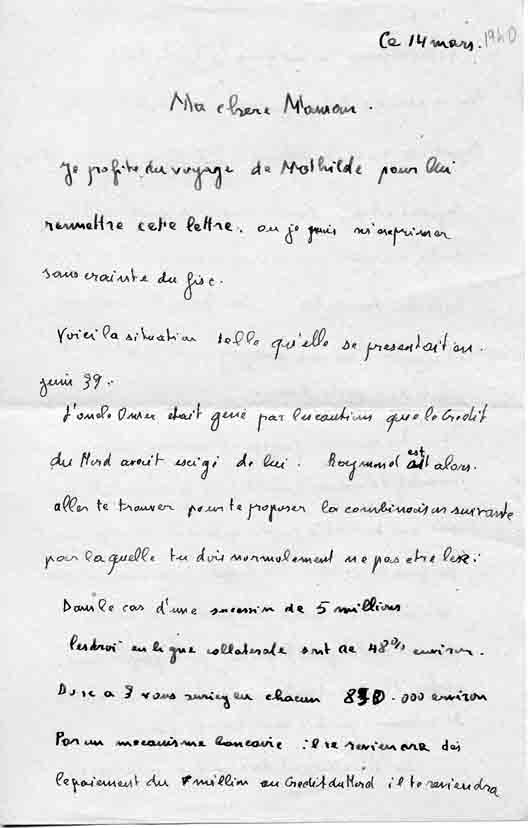 Ce 14 mars. 1940
Ma chere Maman.
Je profite du voyage de Mathilde pour lui
remettre cette lettre. ou je puis m'exprimer
sans crainte du fisc.
Voici la situation telle qu'elle se presentait en.
juin 39.
L'oncle Omer etait gené par les cautions que le Credit
du Nord avait exigé de lui. Raymond est alors.
aller te trouver pour te proposer la combinaison suivante
par laquelle tu dois normalement ne pas etre lesé:
Dans le cas d'une succession de 5 millions
les droi en ligne collaterale sont de 48% environ.
Donc a 3 vous auriez eu chacun 000 environ
Par un mecanisme bancaire il te reviendra dès
le paiement du million au Credit du Nord il te reviendra